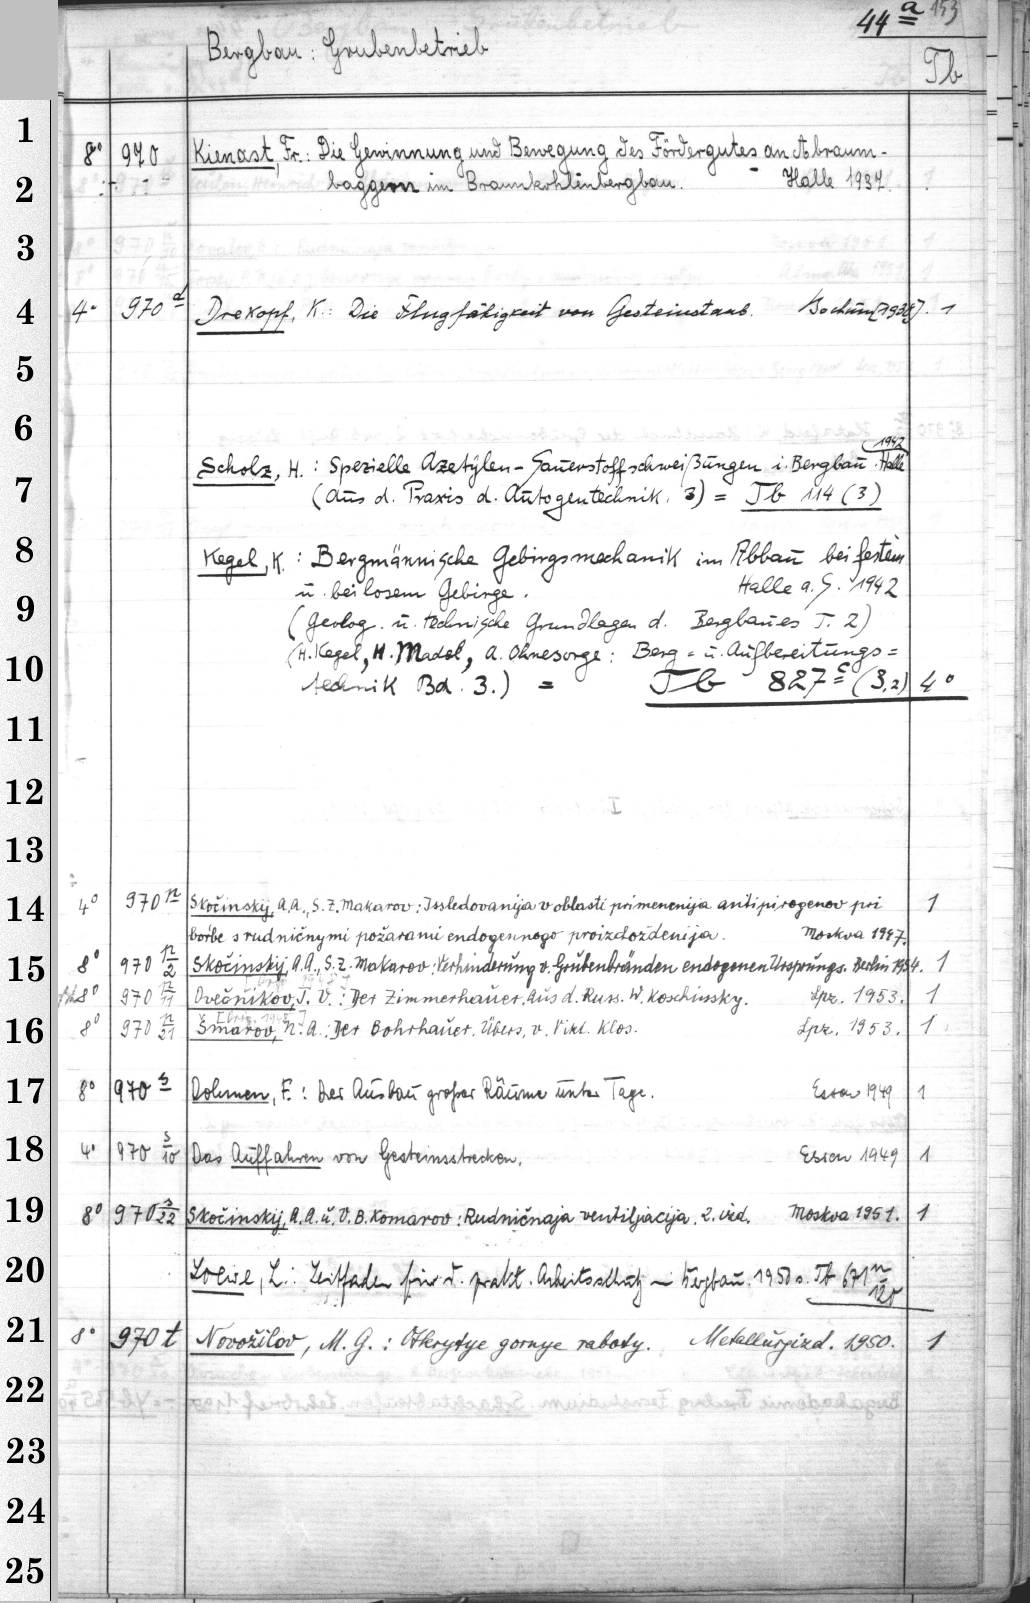 44 a 153
Bergbau: Grubenbetrieb Tb
1
8° 970 Kienast, Fr.: Die Gewinnung und Bewegung des Fördergutes an Abraum-
2 baggern im Braunkohlenbergbau. Halle 1937.
3
4 4° 970 a Drekopf, K.: Die Flugfähigkeit von Gesteinstaub. Bochum [1938]. 1
5
6
1942
Scholz, H.: Spezielle Azetylen-Sauerstoffschweißungen i. Bergbau. Halle
7 (Aus d. Praxis d. Autogentechnik. 3) = Tb 114 (3)
8 Kegel, K.: Bergmännische Gebirgsmechanik im Abbau bei festem
u. bei losem Gebirge. Halle a. S. 1942
9 (Geolog. u. technische Grundlagen d. Bergbaues T. 2)
10 (H. Kegel, H. Madel, A. Ohnesorge: Berg- u. Aufbereitungs=
technik Bd. 3.) = Tb 827 c (3,2) 4°
11
12
13
14 4° 970 n Skočinskij, A.A., S.Z. Makarov: Issledovanija v oblasti primenenija antipirogenov pri 1
borbe s rudničnymi požarami endogennogo proizchoždenija. Moskva 1947.
15 8° 970 n/2 Skočinskij, A.A., S.Z. Makarov: Verhinderung v. Grubenbränden endogenen Ursprungs. Berlin 1954. 1
8° 970 n/11 Ovečnikov, J. V.: Der Zimmerhauer. Aus d. Russ. W. Koschinsky. Lpz. 1953. 1
16 8° 970 n/21 Šmarov, N. A.: Der Bohrhauer. Übers. v. Vikt. Klos. Lpz. 1953. 1
17 8° 970 s Dohmen, F.: Der Ausbau großer Räume unter Tage. Essen 1949 1
18 4° 970 s/10 Das Auffahren von Gesteinsstrecken. Essen 1949 1
19 8° 970 s/22 Skočinskij, A.A. u. V.B. Komarov: Rudničnaja ventiljacija. 2. izd. Moskva 1951. 1
20 Loewe, L.: Leitfaden für d. prakt. Arbeitsschutz im Bergbau. 1950. Tb 671 n/120
21 8° 970 t Novožilov, M. G.: Otkrytye gornye raboty. Metallurgizd. 1950. 1
22
23
24
25